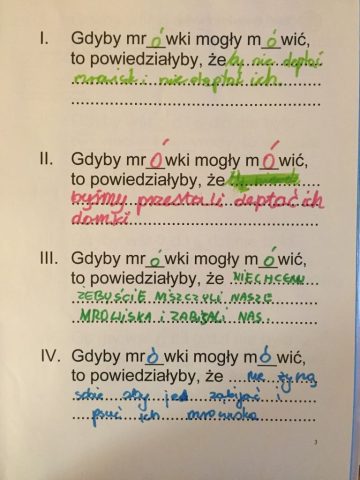 I. Gdyby mrówki mogły mówić,
to powiedziałyby, że by nie deptać
mrówisk i nie deptać ich.
II. Gdyby mrÓwki mogły mÓwić,
to powiedziałyby, że
byśmy przestali deptać ich
domki
III. Gdyby mrówki mogły mówić,
to powiedziałyby, że NIECHCEMY
ŻEBYŚCIE NISZCZYLI NASZE
MROWISKA i ZABIJALI NAS.
IV. Gdyby mrówki mogły mówić,
to powiedziałyby, że nie życzą
sobie aby je zabijać i
psuć ich mrowiska
3